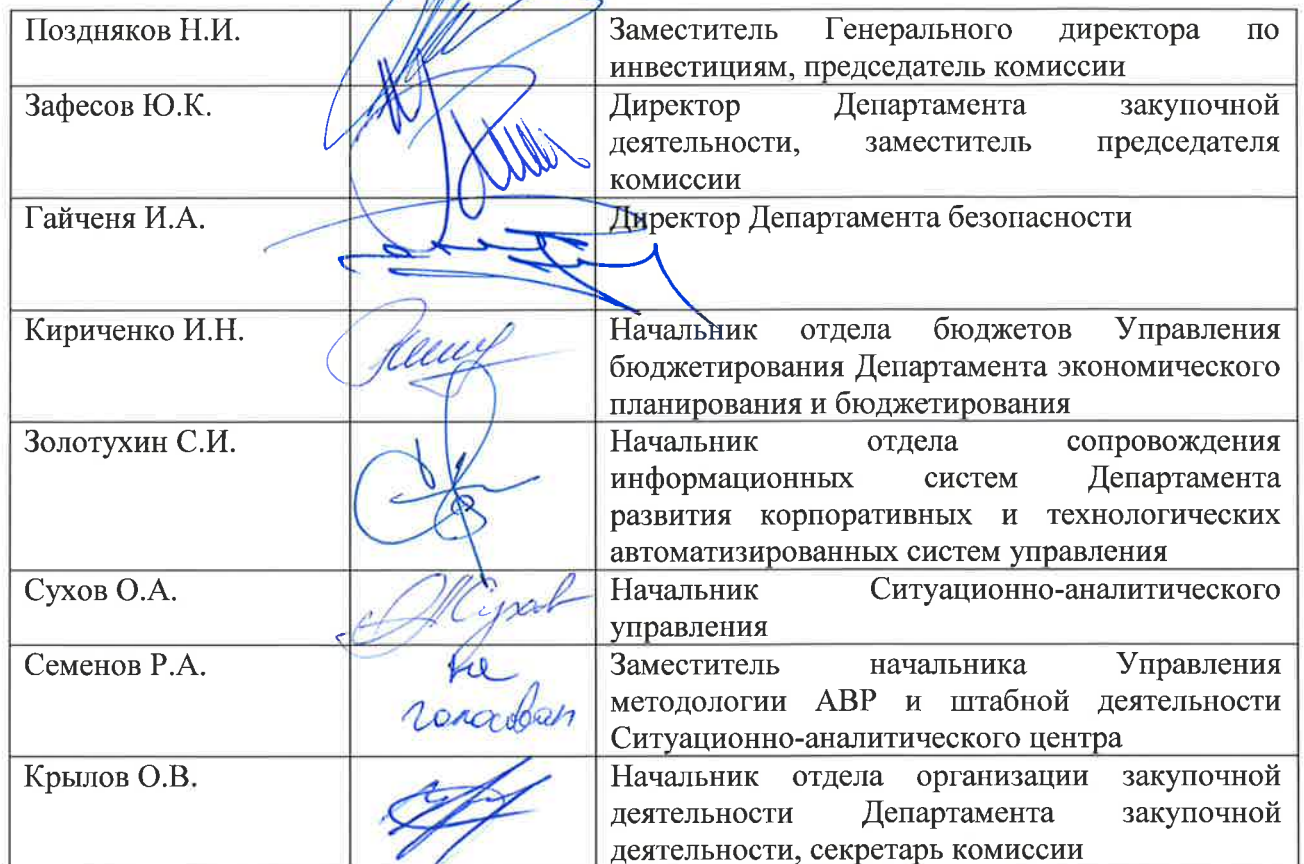 Поздняков Н.И.
Заместитель Генерального директора по
инвестициям, председатель комиссии
Зафесов Ю.К.
Директор Департамента закупочной
деятельности, заместитель председателя
комиссии
Гайченя И.А.
Директор Департамента безопасности
Кириченко И.Н.
Начальник отдела бюджетов Управления
бюджетирования Департамента экономического
планирования и бюджетирования
Золотухин С.И.
Начальник отдела сопровождения
информационных систем Департамента
развития корпоративных и технологических
автоматизированных систем управления
Сухов О.А.
Сухов
Начальник Ситуационно-аналитического
управления
Семенов Р.А.
не
голосовал
Заместитель начальника Управления
методологии АВР и штабной деятельности
Ситуационно-аналитического центра
Крылов О.В.
Начальник отдела организации закупочной
деятельности Департамента закупочной
деятельности, секретарь комиссии